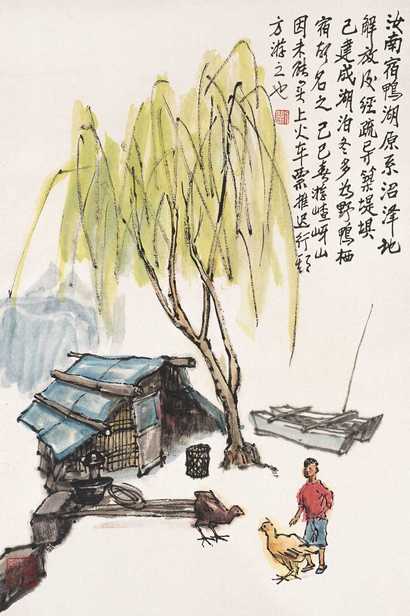 汝南宿鴨湖原系沼泽地
解放后经疏导築堤坝
已建成湖泊冬多为野鴨栖
宿故名之 己巳春游嵖岈山
因未能买上火车票推迟行期
方游之也